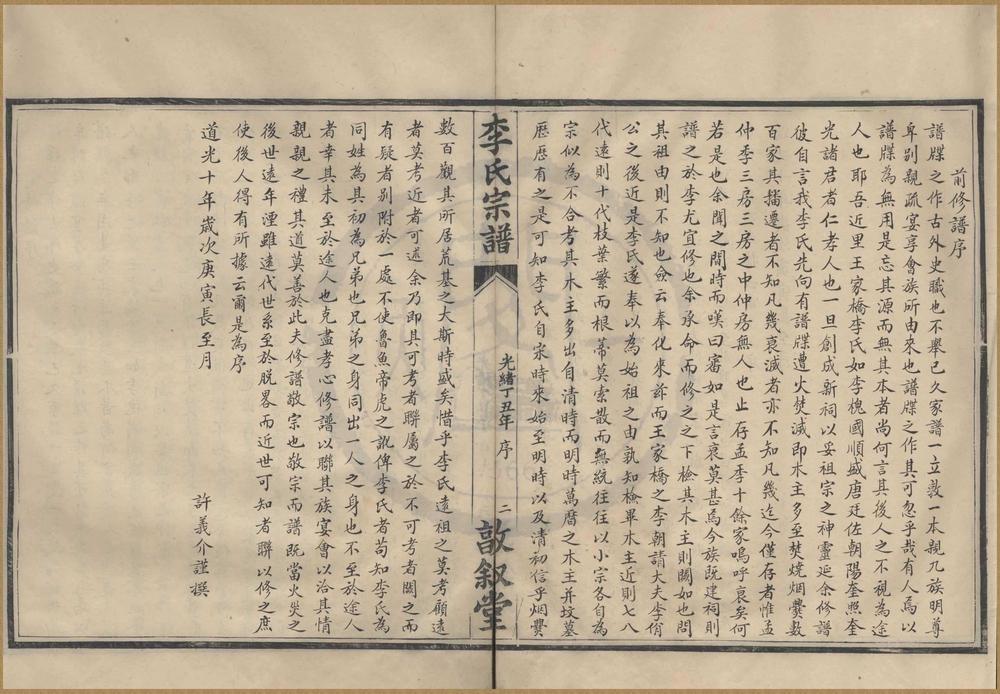 前修譜序
譜牒之作古外史職也不舉已久家譜一立敦一本親九族明尊
卑別親疏宴享會族所由來也譜牒之作其可忽乎哉有人焉以
譜牒為無用是忘其源而無其本者尚何言其後人之不視為途
人也耶吾近里王家橋李氏如李槐國順盛唐廷佐朝陽奎照奎
光諸君者仁孝人也一旦創成新祠以妥祖宗之神靈延余修譜
彼自言我李氏先向有譜牒遭火焚滅即木主多至焚燒烟爨數
百家其播遷者不知凡幾衰滅者亦不知凡幾迄今僅存者惟孟
仲季三房三房之中仲房無人也止存孟季十餘家嗚呼哀矣何
若是也余聞之間時而嘆曰審如是言衰莫甚焉今族既建祠則
譜之於李尤宜修也余承命而修之之下檢其木主則闕如也問
其祖由則不知也僉云奉化來玆而王家橋之李朝請大夫李俏
公之後近是李氏遂奉以為始祖之由孰知檢畢木主近則七八
代遠則十代枝葉繁而根蒂莫索散而無統往往以小宗各自為
宗似為不合考其木主多出自清時而明時萬曆之木主并坟墓
歷歷有之是可知李氏自宋時來始至明時以及清初信乎烟爨
李氏宗譜
光緒丁丑年 序 二
敦敘堂
數百觀其所居荒基之大斯時盛矣惜乎李氏遠祖之莫考顧遠
者莫考近者可述余乃即其可考者聯屬之於不可考者闕之而
有疑者別附於一處不使魯魚帝虎之訛俾李氏者苟知李氏為
同姓為其初為兄弟也兄弟之身同出一人之身也不至於途人
者幸其未至於途人也克盡孝心修譜以聯其族宴會以洽其情
親親之禮其道莫善於此夫修譜敬宗也敬宗而譜既當火災之
後世遠年湮雖遠代世系至於脫畧而近世可知者聯以修之庶
使後人得有所據云爾是為序
道光十年歲次庚寅長至月
許義介謹撰